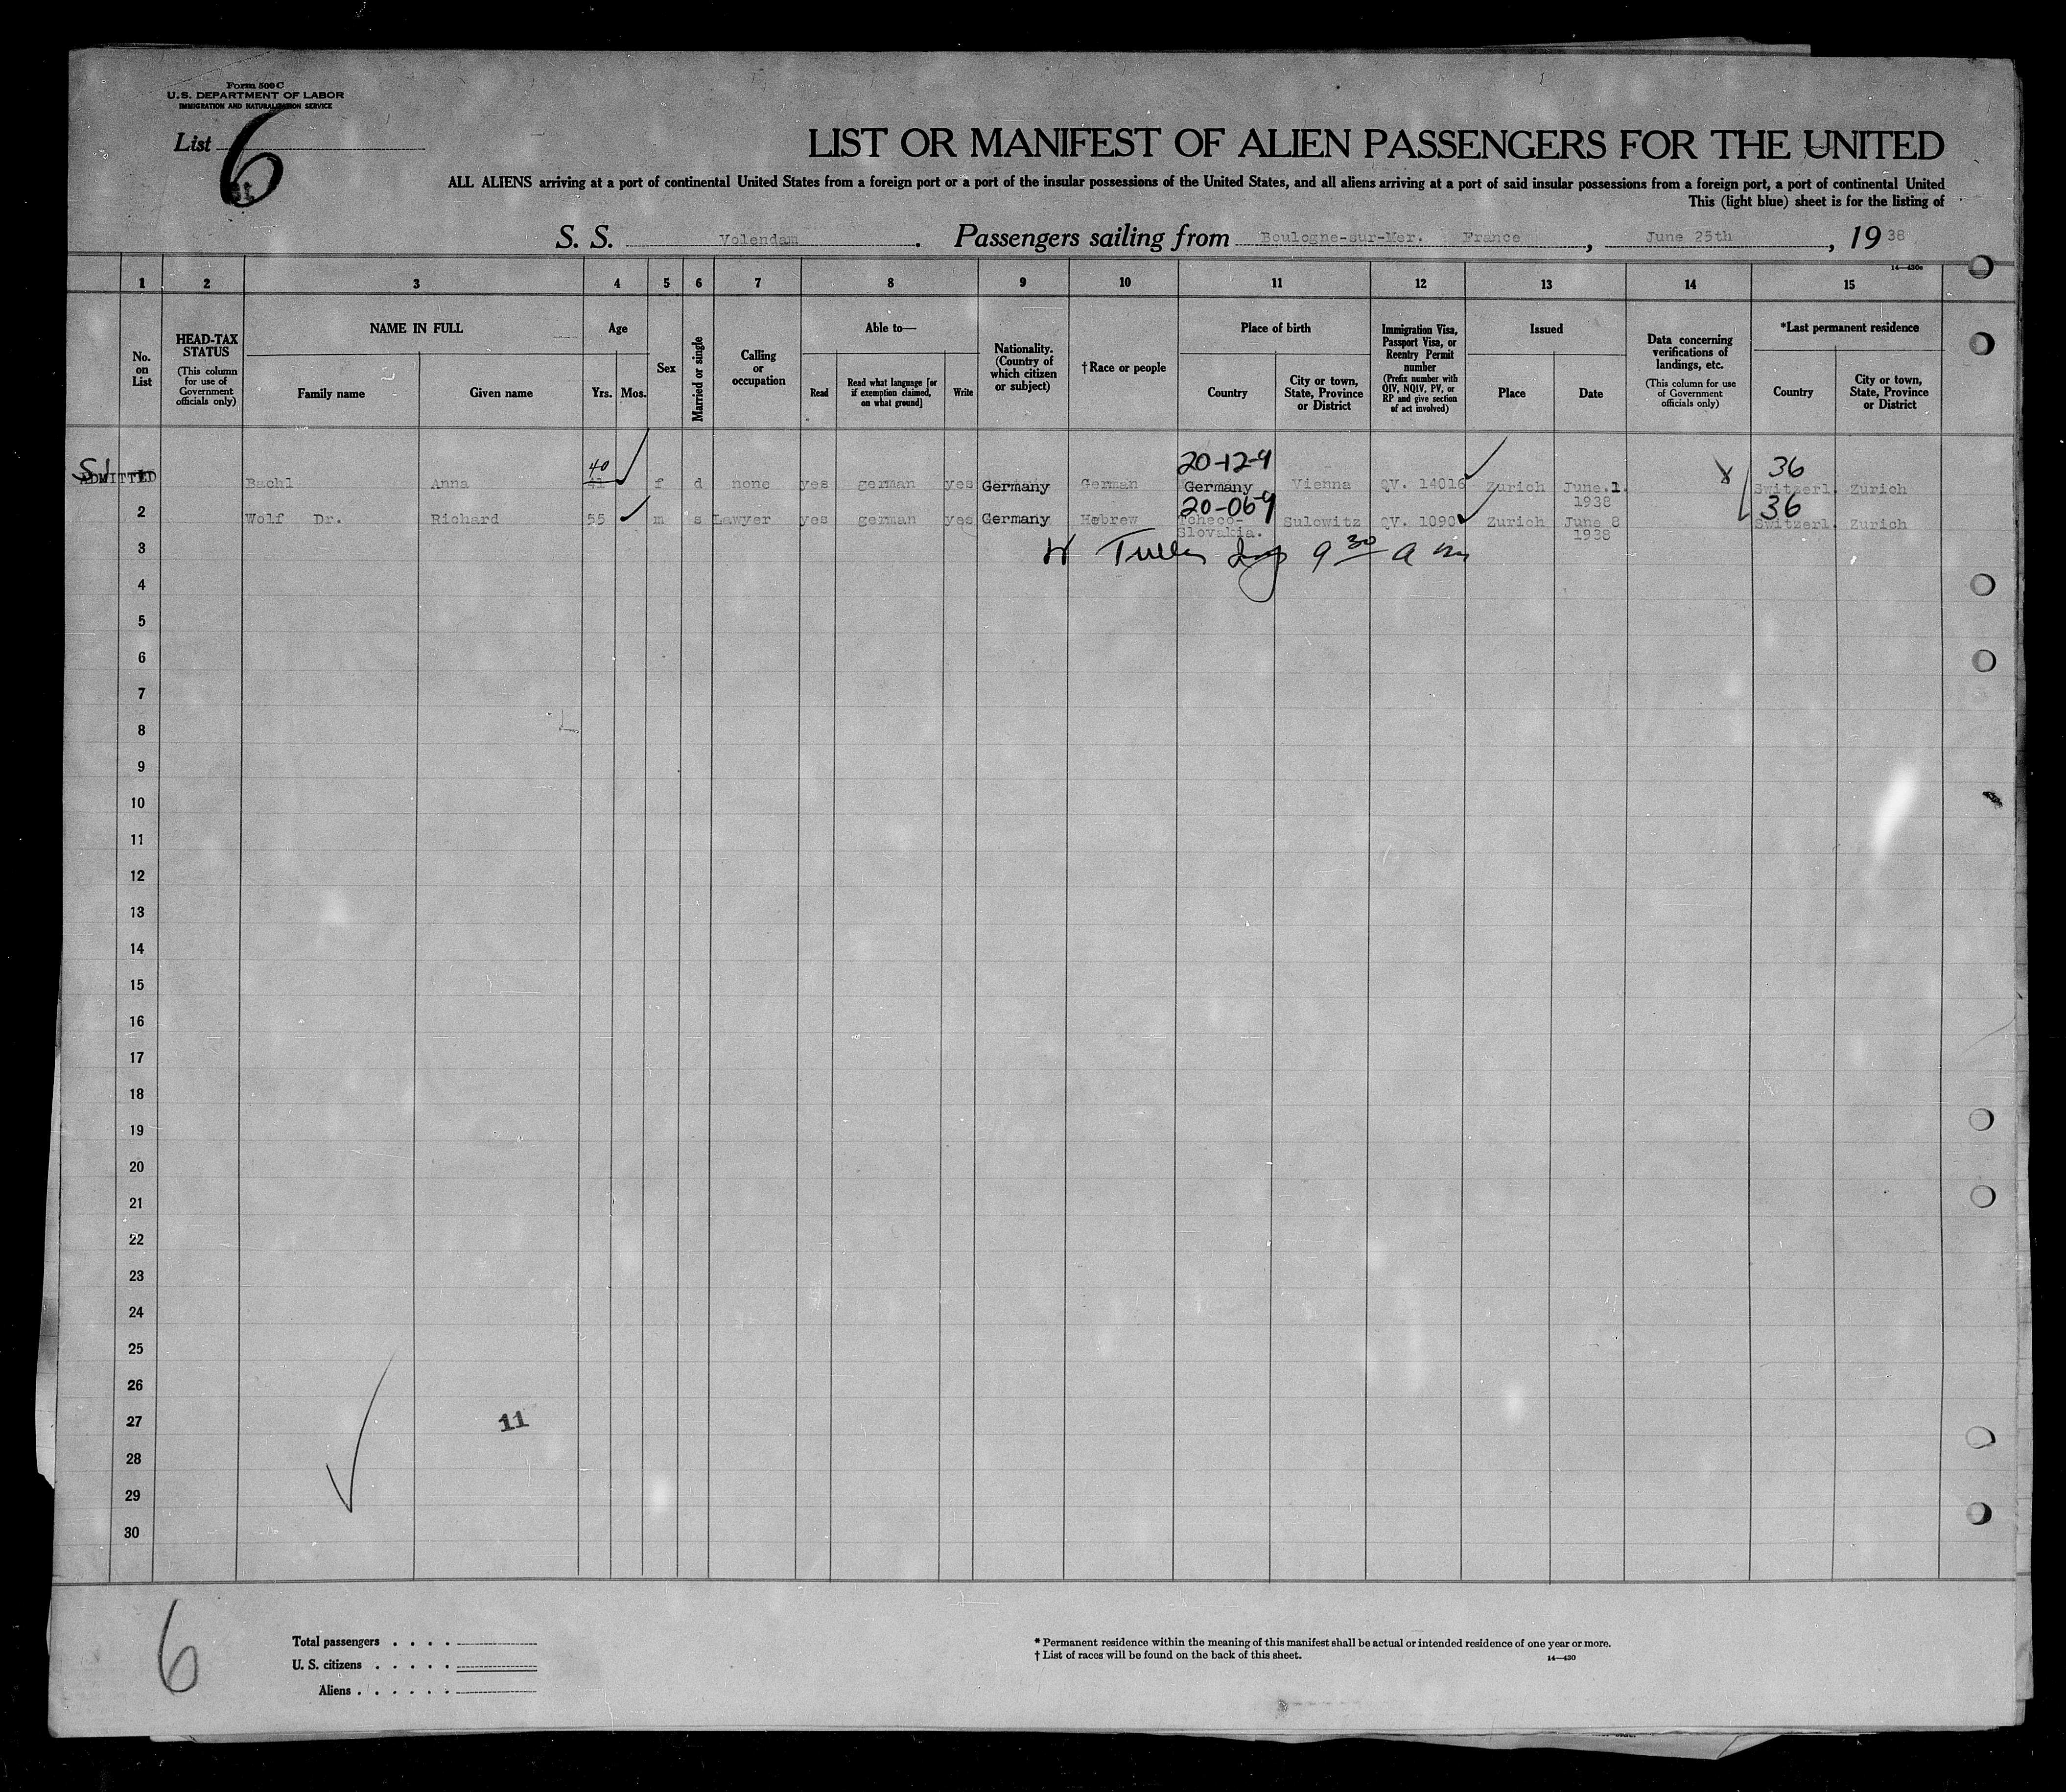 Form 500 C
U.S. DEPARTMENT OF LABOR
IMMIGRATION AND NATURALIZATION SERVICE
List 6
LIST OR MANIFEST OF ALIEN PASSENGERS FOR THE UNITED
ALL ALIENS arriving at a port of continental United States from a foreign port or a port of the insular possessions of the United States, and all aliens arriving at a port of said insular possessions from a foreign port, a port of continental United
This (light blue) sheet is for the listing of
S. S. Volendam. Passengers sailing from Boulogne-sur-Mer. France, June 25th, 19 38
14—430a
1 2 3 4 5 6 7 8 9 10 11 12 13 14 15
No. on List
HEAD-TAX STATUS (This column for use of Government officials only)
NAME IN FULL
Family name Given name
Age
Yrs. Mos.
Sex
Married or single
Calling or occupation
Able to—
Read Read what language [or if exemption claimed, on what ground] Write
Nationality. (Country of which citizen or subject)
†Race or people
Place of birth
Country City or town, State, Province or District
Immigration Visa, Passport Visa, or Reentry Permit number (Prefix number with QIV, NQIV, PV, or RP and give section of act involved)
Issued
Place Date
Data concerning verifications of landings, etc. (This column for use of Government officials only)
*Last permanent residence
Country City or town, State, Province or District
40 20-12-9 36
SI ADMITTED 1 Bachl Anna 41 f d none yes german yes Germany German Germany Vienna QV. 14016 Zurich June.1. 1938 Switzerl. Zurich
20-06-9 36
2 Wolf Dr. Richard 55 m s Lawyer yes german yes Germany Hebrew Tcheco-Slovakia. Sulowitz QV. 1090 Zurich June 8 1938 Switzerl. Zurich
3 9 30 a m
4
5
6
7
8
9
10
11
12
13
14
15
16
17
18
19
20
21
22
23
24
25
26
27 11
28
29
30
6
Total passengers . . . .
U. S. citizens . . . . .
Aliens . . . . . .
* Permanent residence within the meaning of this manifest shall be actual or intended residence of one year or more.
† List of races will be found on the back of this sheet. 14—430